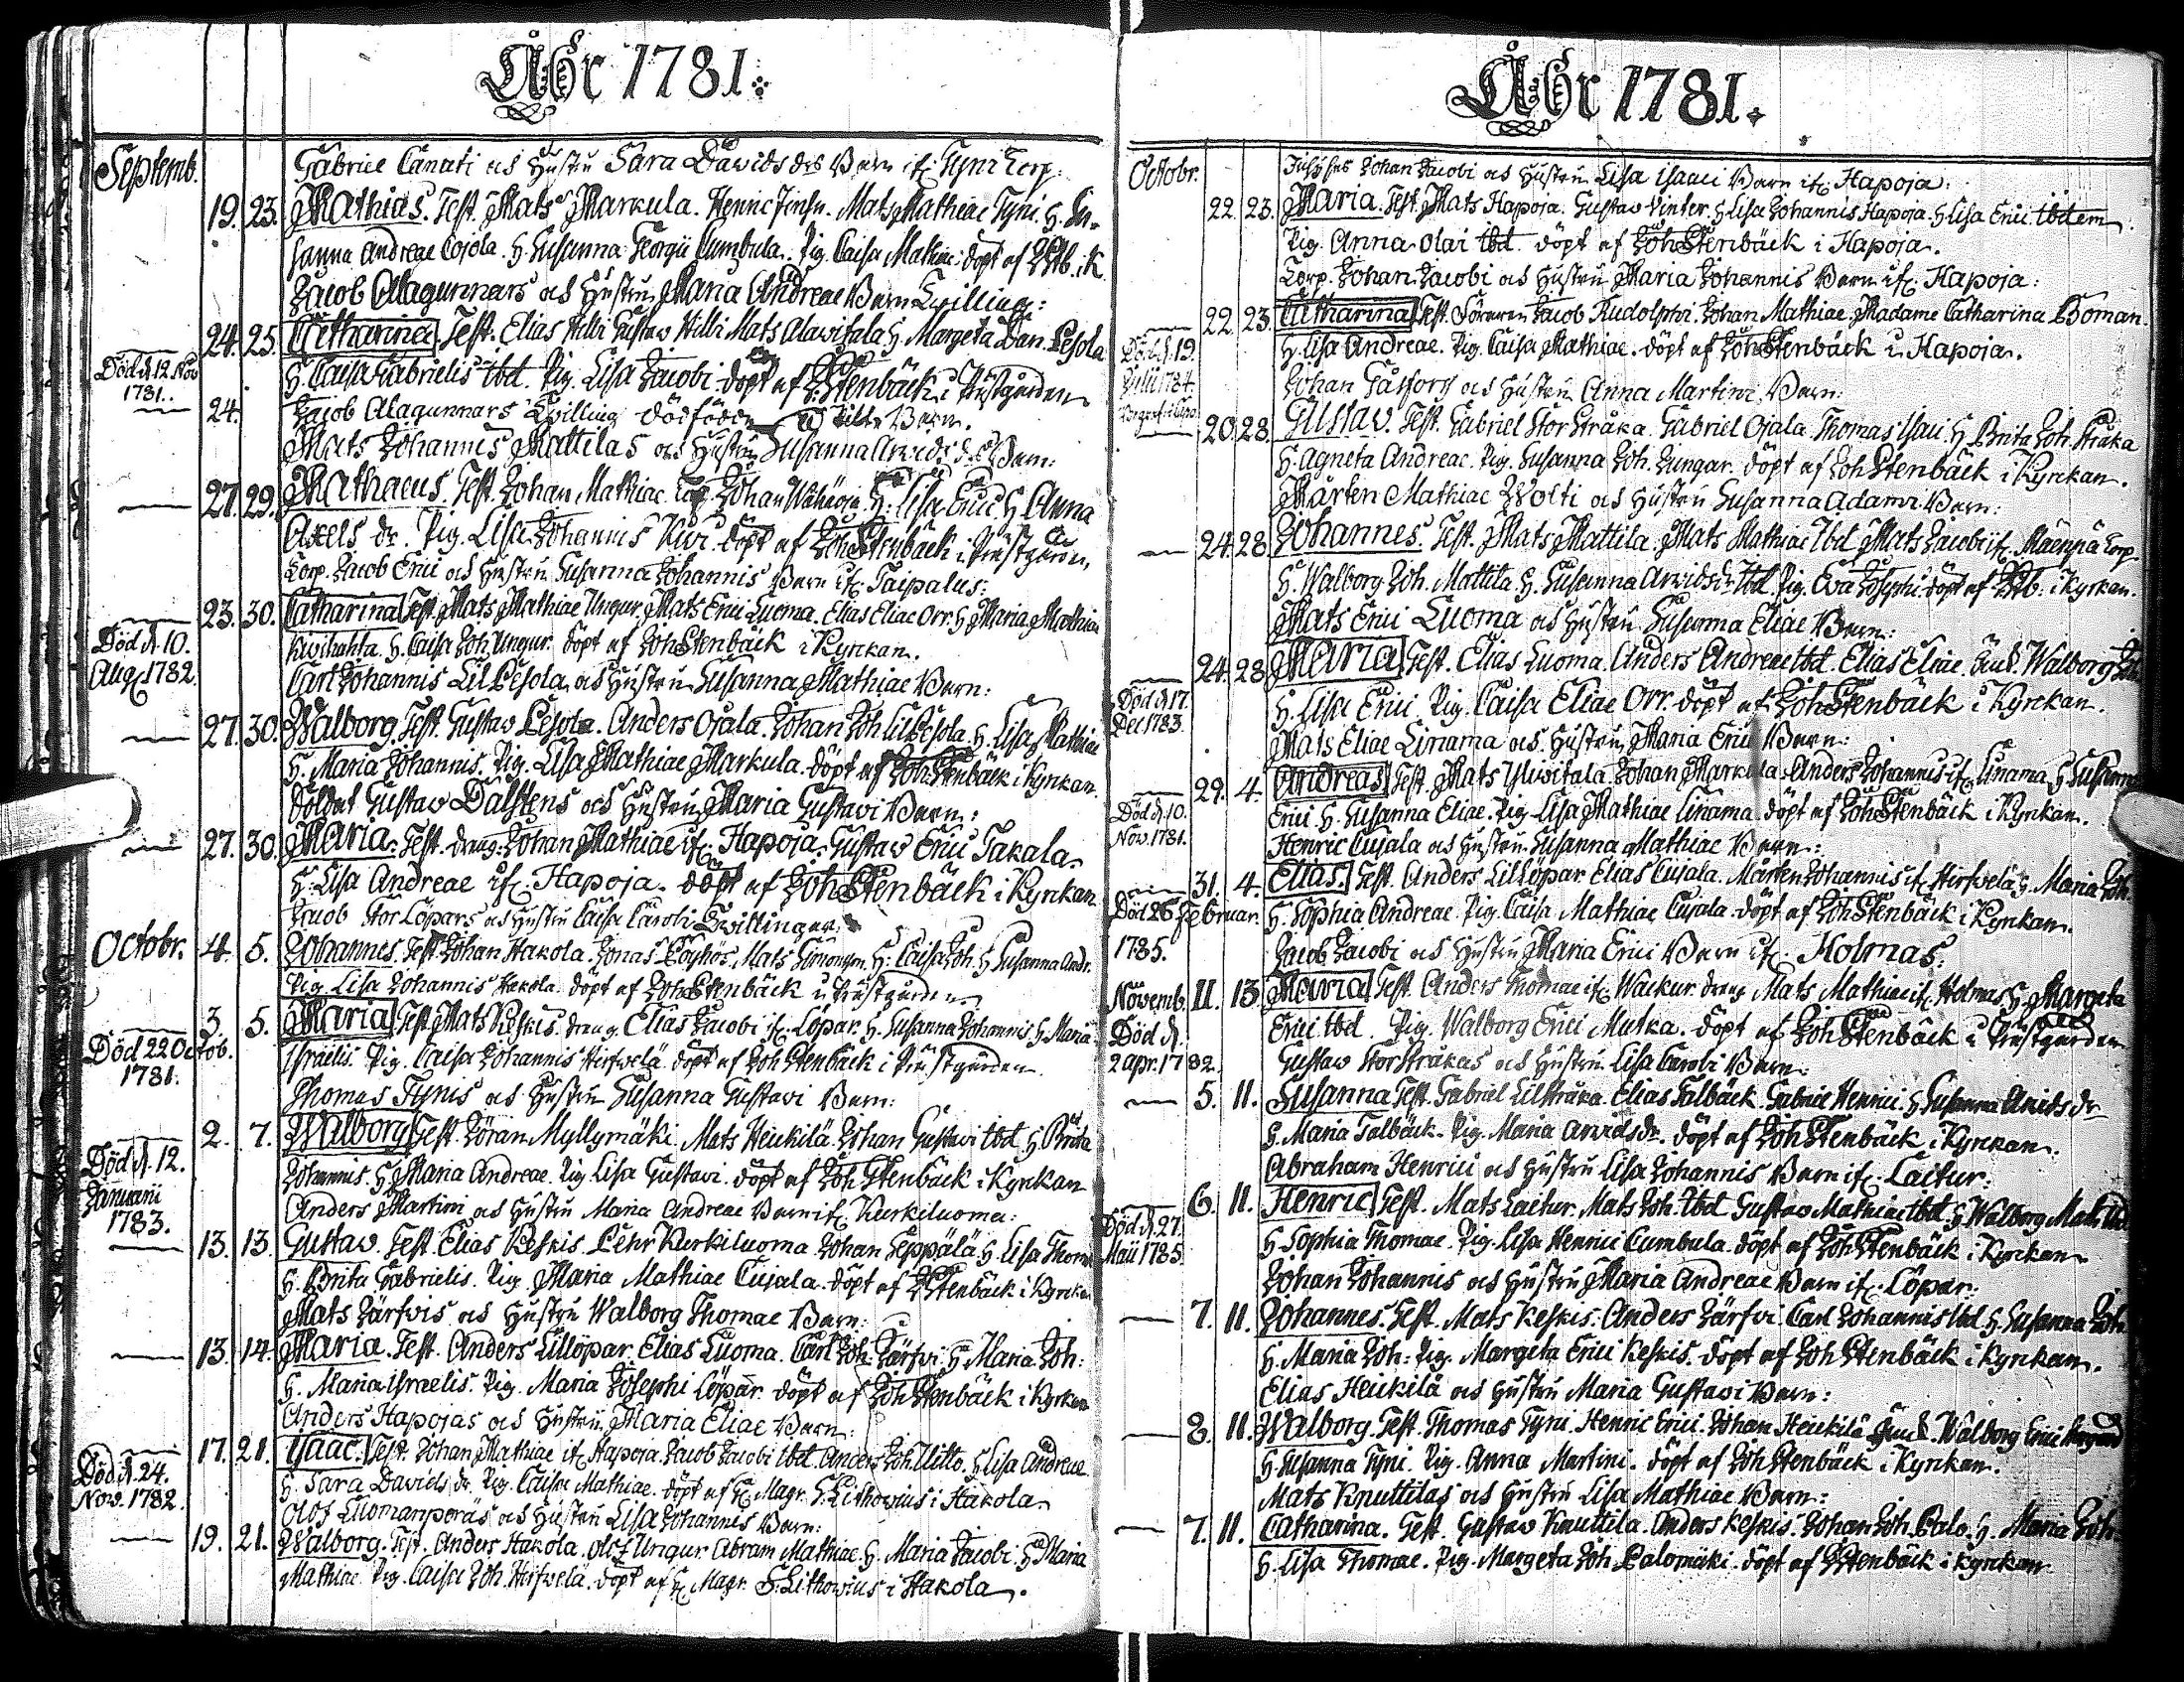 Åhr 1781.
Septemb.
Gabriel Canati och Hustru Sara Davids drs Barn if: Tyni Torp:
19. 23. Mathias. Test. Mats Markula. Henric Mats Mathiae Tyni. H. Su-
sanna Andreae Cojola. H. Susanna Georgii Cumbula. Pig. Caisa Mathiae: döpt af i K.
Jacob Alagunnars och Hustru Maria Andreae Barn Tvilling:
24. 25. Catharina Test. Elias Hilli Gustav Hilli Mats Alavitala H. Margeta Dan. Pesola
Död d. 12. Nov 1781.
H. Caisa Gabrielis ibd. Pig. Lisa Jacobi döpt af J: Stenbäck i Prästgården
24. Jacob Alagunnars Tvilling dödfödde Barn.
Mats Johannis Mattilas och Hustru Susanna Arvids drs Barn:
27. 29. Mathaeus. Test. Johan Mathiae Johan H: Lisa Erici H Anna
Axels dr. Pig. Lisa Johannis döpt af Joh Stenbäck i Prästgården
Torp. Jacob Erici och Hustru Susanna Johannis Barn if: Taipalus:
23. 30. Catharina Test. Mats Mathiae Ungur. Mats Erici Luoma. Elias Eliae Orr. H Maria Mathiae
Död d. 10. Aug. 1782.
H. Caisa Joh. Ungur. döpt af Joh Stenbäck i Kyrckan.
Carl Johannis Lil Pesola och Hustru Susanna Mathiae Barn:
27. 30. Walborg. Test. Gustav Pesola. Anders Ojala. Johan Joh Lil Pesola. H. Lisa Mathiae
H. Maria Johannis. Pig. Lisa Mathiae Markula. döpt af Joh. Stenbäck i Kyrckan.
Soldat Gustav Dalstens och Hustru Maria Gustavi Barn:
27. 30. Maria. Test. dräng. Johan Mathiae if: Hapoja. Gustav Erici Takala.
H. Lisa Andreae if: Hapoja. döpt af Joh Stenbäck i Kyrckan
Jacob Stor Löpars och Hustru Caisa Caroli Tvillingar:
Octobr. 4. 5. Johannes. Test. Johan Hakola. Jonas Pöyhös. Mats Simonson. H: Caisa Joh. H Susanna Andr.
Pig. Lisa Johannis Hakola. döpt af Joh Stenbäck i Prästgården
3. 5. Maria Test. Mats Keskis. dräng. Elias Jacobi if: Löpar. H. Susanna Johannis. H Maria
Död 22 Octob. 1781.
Israelis. Pig. Caisa Johannis Hirfvelä. döpt af Joh Stenbäck i Prästgården.
Thomas Tynis och Hustru Susanna Gustavi Barn:
2. 7. Walborg Test. Jöran Myllymäki. Mats Heickilä. Johan Gustavi ibd. H. Brita
Död d. 12. Januarii 1783.
Johannis. H Maria Andreae. Pig Lisa Gustavi. döpt af Joh Stenbäck i Kyrckan
Anders Martini och Hustru Maria Andreae Barn if: Kurkiluoma:
13. 13. Gustav. Test. Elias Keskis. Pehr Kurkiluoma. Johan Seppälä. H. Lisa Thom
H. Brita Gabrielis. Pig. Maria Mathiae Cujala. döpt af J Stenbäck i Kyrcka
Mats Järfvis och Hustru Walborg Thomae Barn:
13. 14. Maria. Test. Anders Lillöpar. Elias Luoma. Carl Joh: Järfvi. H Maria Joh:
H. Maria Israelis. Pig. Maria Josephi Löpar. döpt af Joh Stenbäck i Kyrckan
Anders Hapojas och Hustru Maria Eliae Barn:
17. 21. Isaac. Test. Johan Mathiae if: Hapoja. Jacob Jacobi ibd. Anders Joh. Uitto. H Lisa Andreae.
Död d. 24. Nov. 1782.
H. Sara Davids dr. Pig. Caisa Mathiae. döpt af Magr. S. Lithovius i Hakola
Olof Luomanperäs och Hustru Lisa Johannis Barn:
19. 21. Walborg. Test. Anders Hakola. Olof Ungur. Abram Mathiae. H. Maria Jacobi. H Maria
Mathiae Pig. Caisa Joh. Hirfvelä. döpt af Magr. S. Lithovius i Hakola.
Åhr 1781.
Octobr.
Johan Jacobi och Hustru Lisa Isaaci Barn if: Hapoja:
22. 23. Maria. Test. Mats Hapoja. Gustav Vinter. H Lisa Johannis Hapoja. H Lisa Erici ibdem
Pig. Anna Olai ibd. döpt af Joh Stenbäck i Hapoja.
Torp. Johan Jacobi och Hustru Maria Johannis Barn if: Hapoja:
22. 23. Catharina Test. Jacob Rudolphi. Johan Mathiae. Madame Catharina Boman.
Död d. 19. Julii 1784.
H. Lisa Andreae. Pig. Caisa Mathiae. döpt af Joh Stenbäck i Hapoja.
Johan och Hustru Anna Martini Barn:
20. 28. Gustav. Test. Gabriel Stor Stråka. Gabriel Ojala. Thomas H Brita Joh. Stråka
H. Agneta Andreae. Pig. Susanna Joh. Zungar. döpt af Joh Stenbäck i Kyrckan.
Mårten Mathiae Wolti och Hustru Susanna Adami Barn:
24. 28. Johannes. Test. Mats Mattila. Mats Mathiae ibd. Mats Jacobi if: Mäenpä Torp
H. Walborg Joh. Mattila. H. Susanna Arvids dr ibd. Pig. Eva Josephi. döpt af i Kyrckan.
Mats Erici Luoma och Hustru Susanna Eliae Barn:
24. 28. Maria Test. Elias Luoma. Anders Andreae ibd. Elias Eliae. Walborg
Död d. 17. Dec 1783.
H. Lisa Erici. Pig. Caisa Eliae Orr. döpt af Joh Stenbäck i Kyrckan.
Mats Eliae Linama och Hustru Maria Erici Barn:
29. 4. Andreas Test. Mats Yliwitala. Johan Markula. Anders Johannis if: Linama. H Susanna
Död d. 10. Nov. 1781.
Erici. H. Susanna Eliae. Pig. Lisa Mathiae Linama. döpt af Joh Stenbäck i Kyrckan.
Henric Cujala och Hustru Susanna Mathiae Barn:
31. 4. Elias. Test. Anders Lillöpar. Elias Cujala. Mårten Johannis if: Hirfvelä. H. Maria Joh.
Död 26 Februar. 1785.
H. Sophia Andreae. Pig. Caisa Mathiae Cujala. döpt af Joh Stenbäck i Kyrckan.
Jacob Jacobi och Hustru Maria Erici Barn if: Holmas:
Novemb. 11. 13. Maria Test. Anders Thomae if: Wackur. dräng Mats Mathiae if: Holmas. H. Margeta
Död d. 2 apr. 1782.
Erici ibd. Pig. Walborg Erici Mutka. döpt af Joh Stenbäck i Prästgården
Gustav Storstråkas och Hustru Lisa Caroli Barn:
5. 11. Susanna Test. Gabriel Lilstråka. Elias Talbäck. Gabriel Henrici. H Susanna Arvids dr
H. Maria Talbäck. Pig. Maria Arvids dr. döpt af Joh Stenbäck i Kyrckan.
Abraham Henrici och Hustru Lisa Johannis Barn if: Caitur:
6. 11. Henric Test. Mats Caitur. Mats Joh. ibd. Gustav Mathiae ibd. H Walborg Math ibd
Död d. 27. Maii 1785.
H Sophia Thomae. Pig. Lisa Henrici Cumbula. döpt af Joh Stenbäck i Kyrckan
Johan Johannis och Hustru Maria Andreae Barn if: Löpar:
7. 11. Johannes. Test. Mats Keskis. Anders Järfvi. Carl Johannis ibd. H Susanna Joh.
H. Maria Joh: Pig. Margeta Erici Keskis. döpt af Joh Stenbäck i Kyrckan.
Elias Heickilä och Hustru Maria Gustavi Barn:
8. 11. Walborg. Test. Thomas Tyni. Henric Erici. Johan Heickilä. Walborg Erici
H. Susanna Tyni. Pig. Anna Martini. döpt af Joh Stenbäck i Kyrckan.
Mats Knuttilas och Hustru Lisa Mathiae Barn:
7. 11. Catharina. Test. Gustav Knuttila. Anders Keskis. Johan Joh. Palo. H. Maria Joh
H. Lisa Thomae. Pig. Margeta Joh Palomäki. döpt af J Stenbäck i Kyrckan